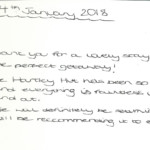 4th January 2018
ank you for a lovely stay
e perfect getaway!
e Hartley Hut has been so
nd everything is
nd at.
e will definitely be
ll be reccommending it to